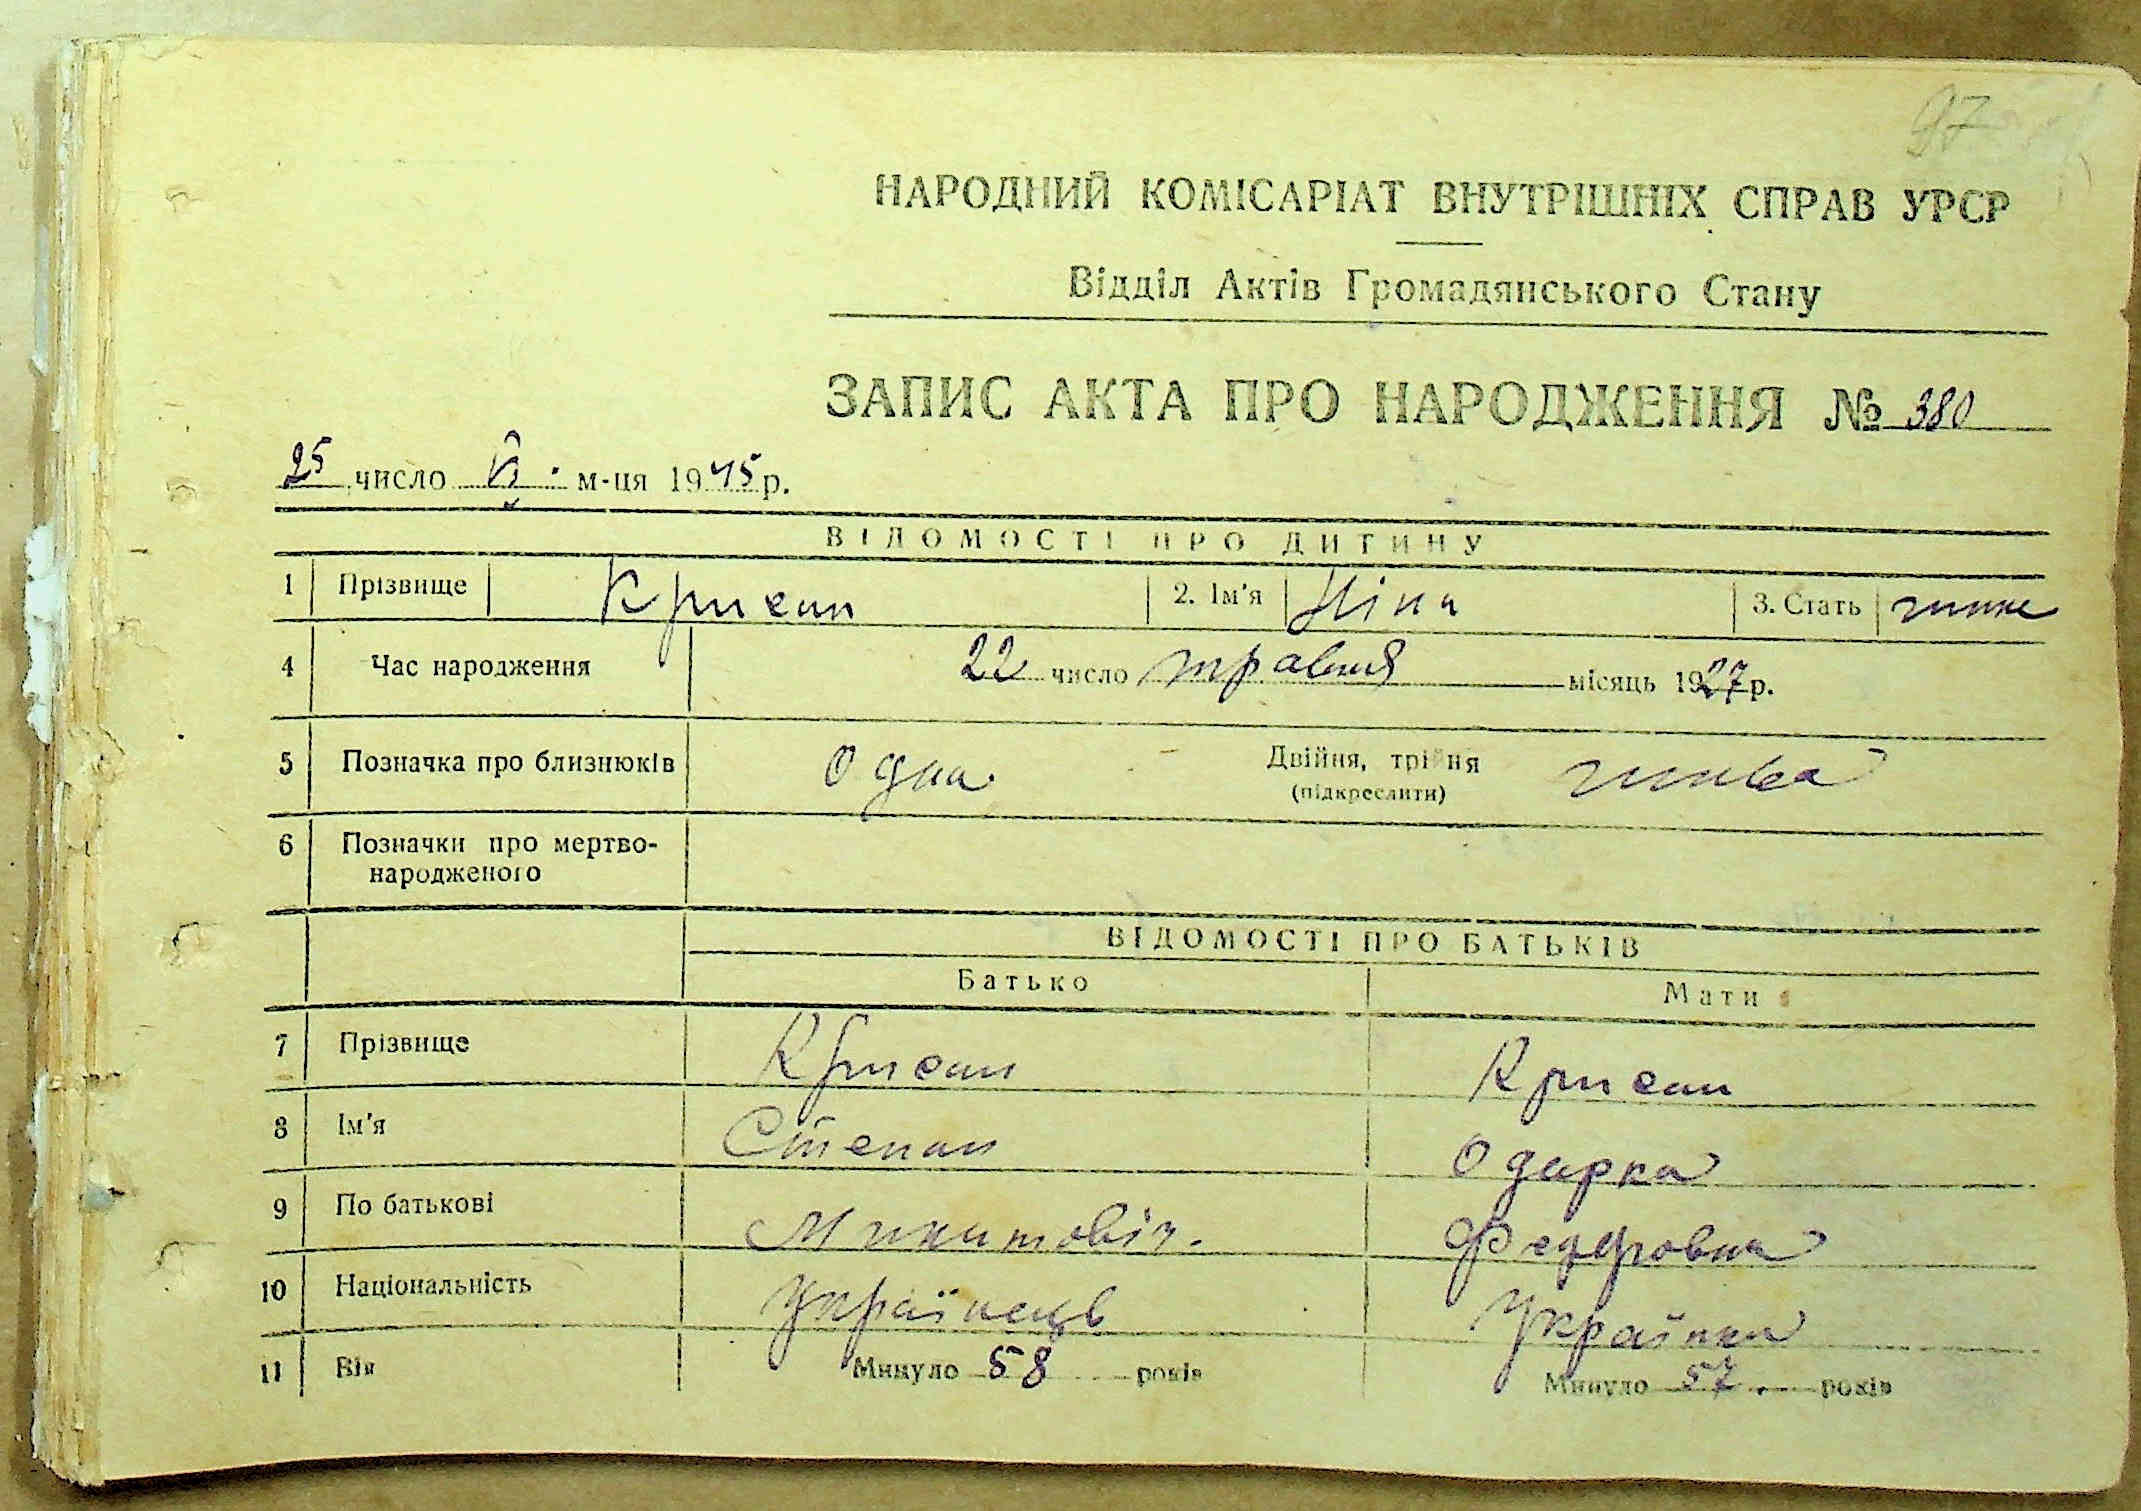 97
НАРОДНИЙ КОМІСАРІАТ ВНУТРІШНІХ СПРАВ УРСР
Відділ Актів Громадянського Стану
ЗАПИС АКТА ПРО НАРОДЖЕННЯ № 380
25 число м-ця 1945 р.
ВІДОМОСТІ ПРО ДИТИНУ
1 Прізвище Крисан 2. Ім'я Ніна 3. Стать
4 Час народження 22 число травня місяць 1927 р.
5 Позначка про близнюків Одна Двійня, трійня
(підкреслити)
6 Позначки про мертво-
народженого
ВІДОМОСТІ ПРО БАТЬКІВ
Батько Мати
7 Прізвище Крисан Крисан
8 Ім'я Степан Одарка
9 По батькові Микитовіч. Федоровна
10 Національність Українець Українка
11 Вік Минуло 58 років Минуло 57 років